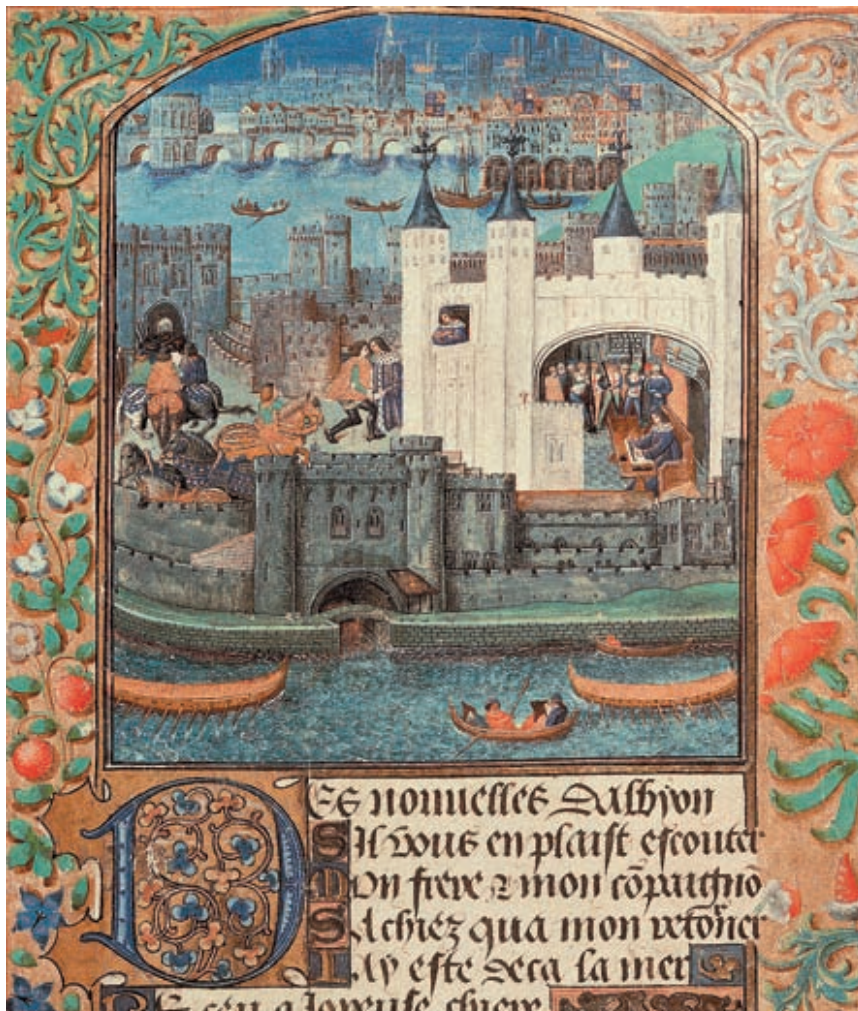 DEs nouuelles Dalbyon
SIl vous en plaist escouter
MOn frere & mon cōpaignō
SAchiez qua mon retōner
IAy este deca la mer
REceu a Joyeuse chiere